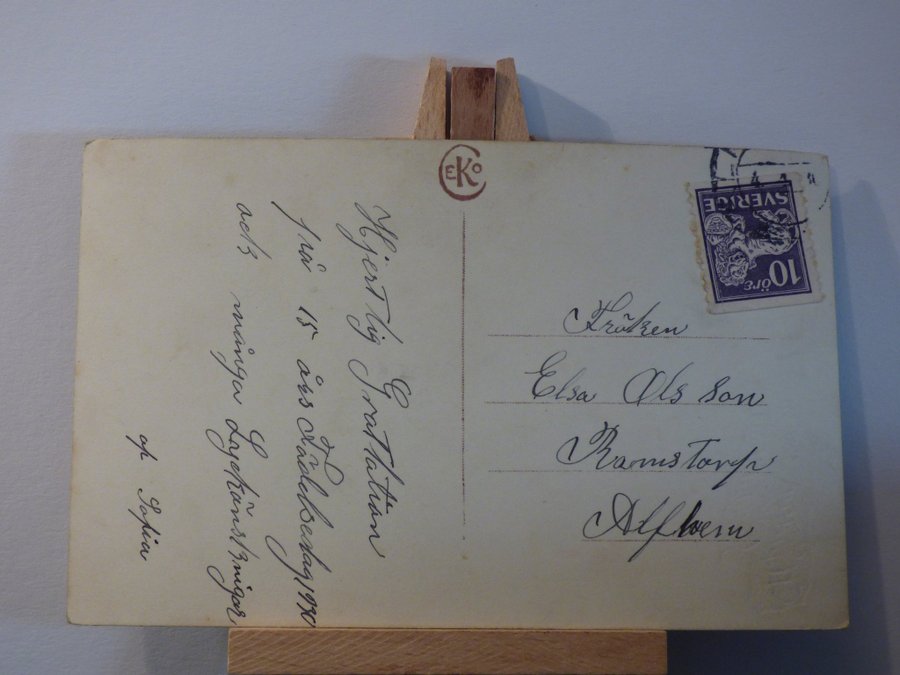 EKO
Hjertlig Grattation
från 15 års Födelsedag 1930
och många Lyckönskningar
af Sofia
SVERIGE
10
ÖRE
Fröken
Elsa Olsson
Ramstorp